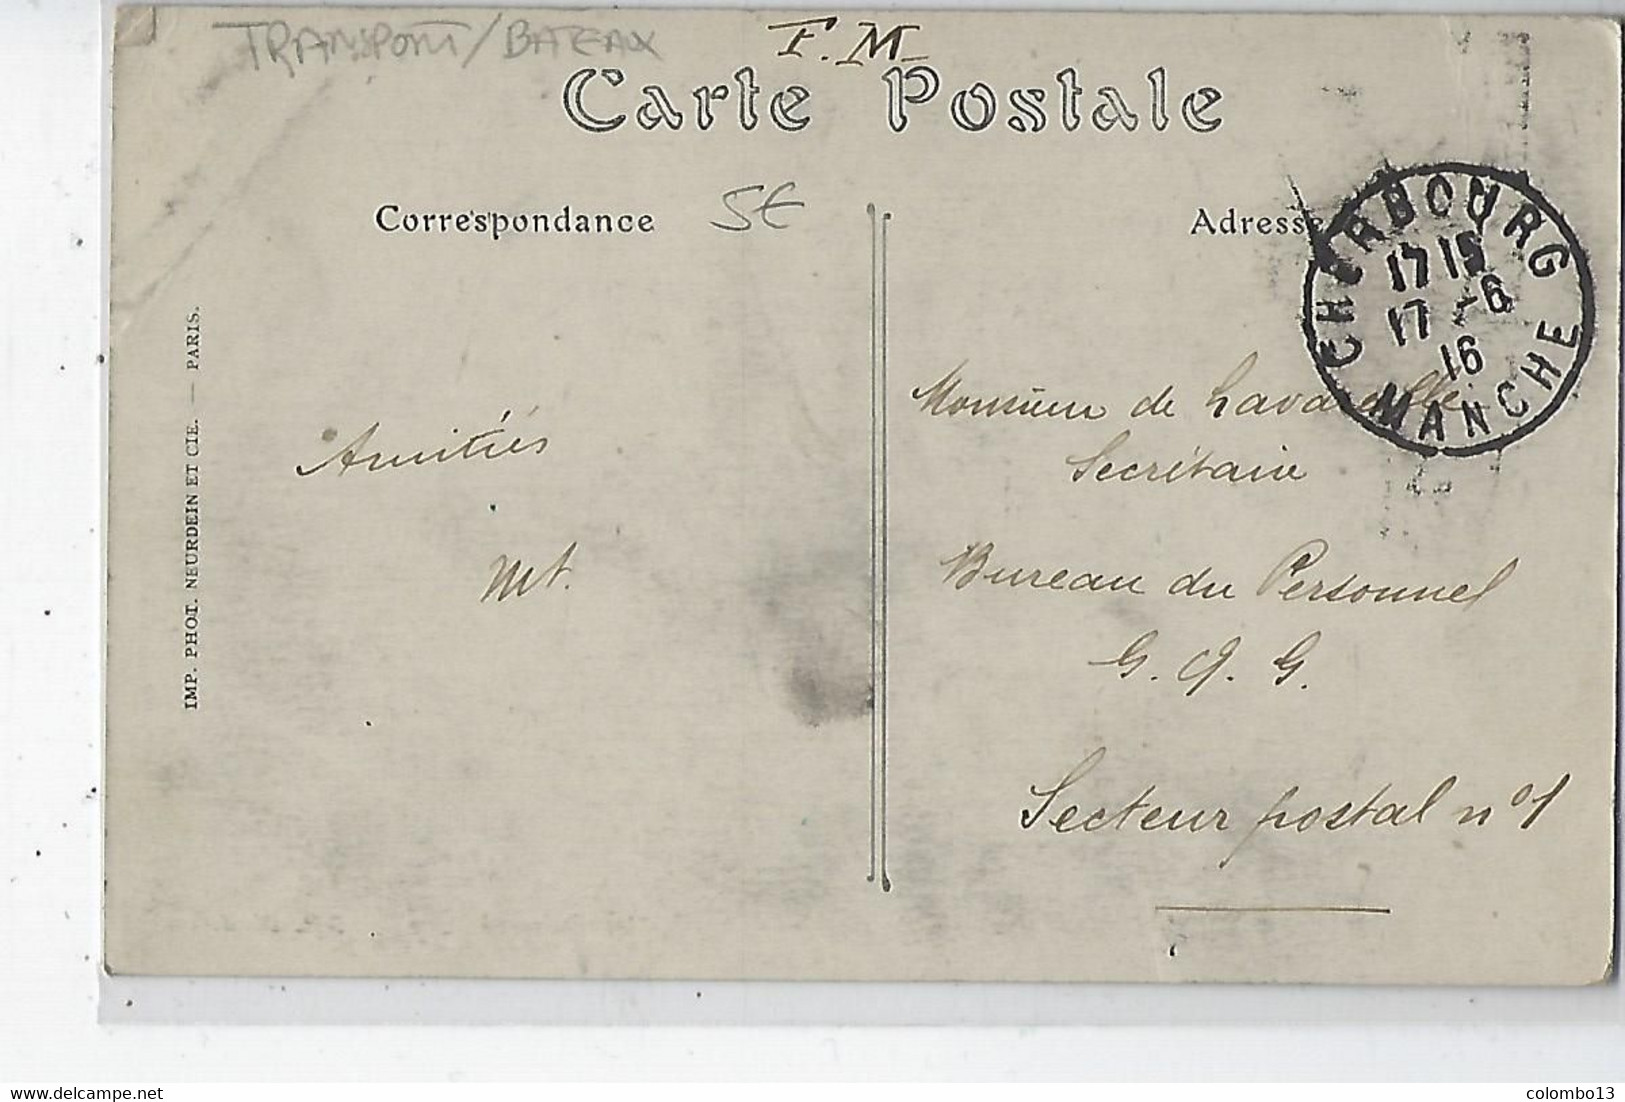 TRANSPORT/BATEAUX
F.M.
Carte Postale
Correspondance
5€
Adresse
CHERBOURG
17 15
17 - 6
16
MANCHE
IMP. PHOT. NEURDEIN ET CIE. — PARIS.
Amitiés
Monsieur de
Secrétaire
Bureau du Personnel
G. Q. G.
Secteur postal n° 1
colombo13